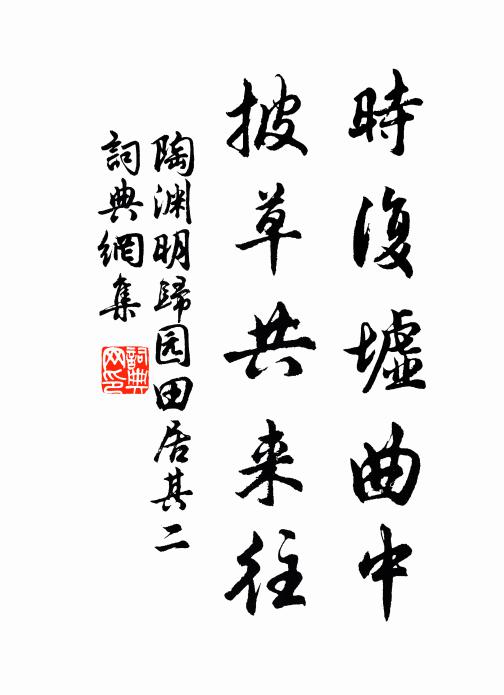 時復墟曲中
披草共来往
陶渊明歸园田居其二
詞典網集
詞典网印